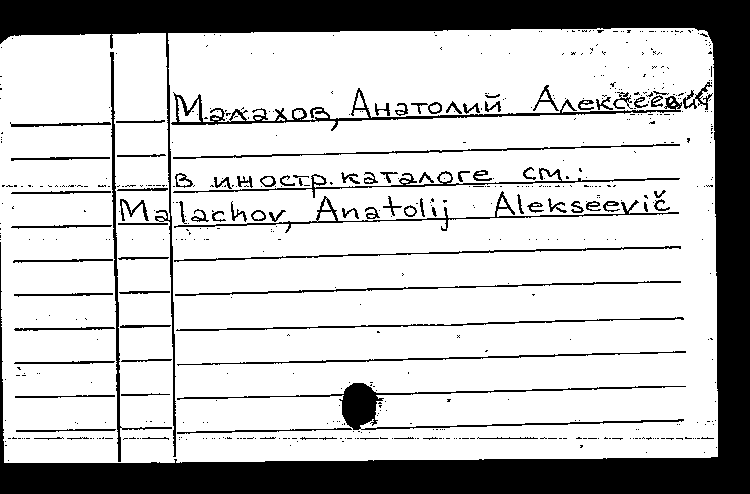 Малахов, Анатолий Алексеевич
в иностр. каталоге см.:
Malachov, Anatolij Alekseevič